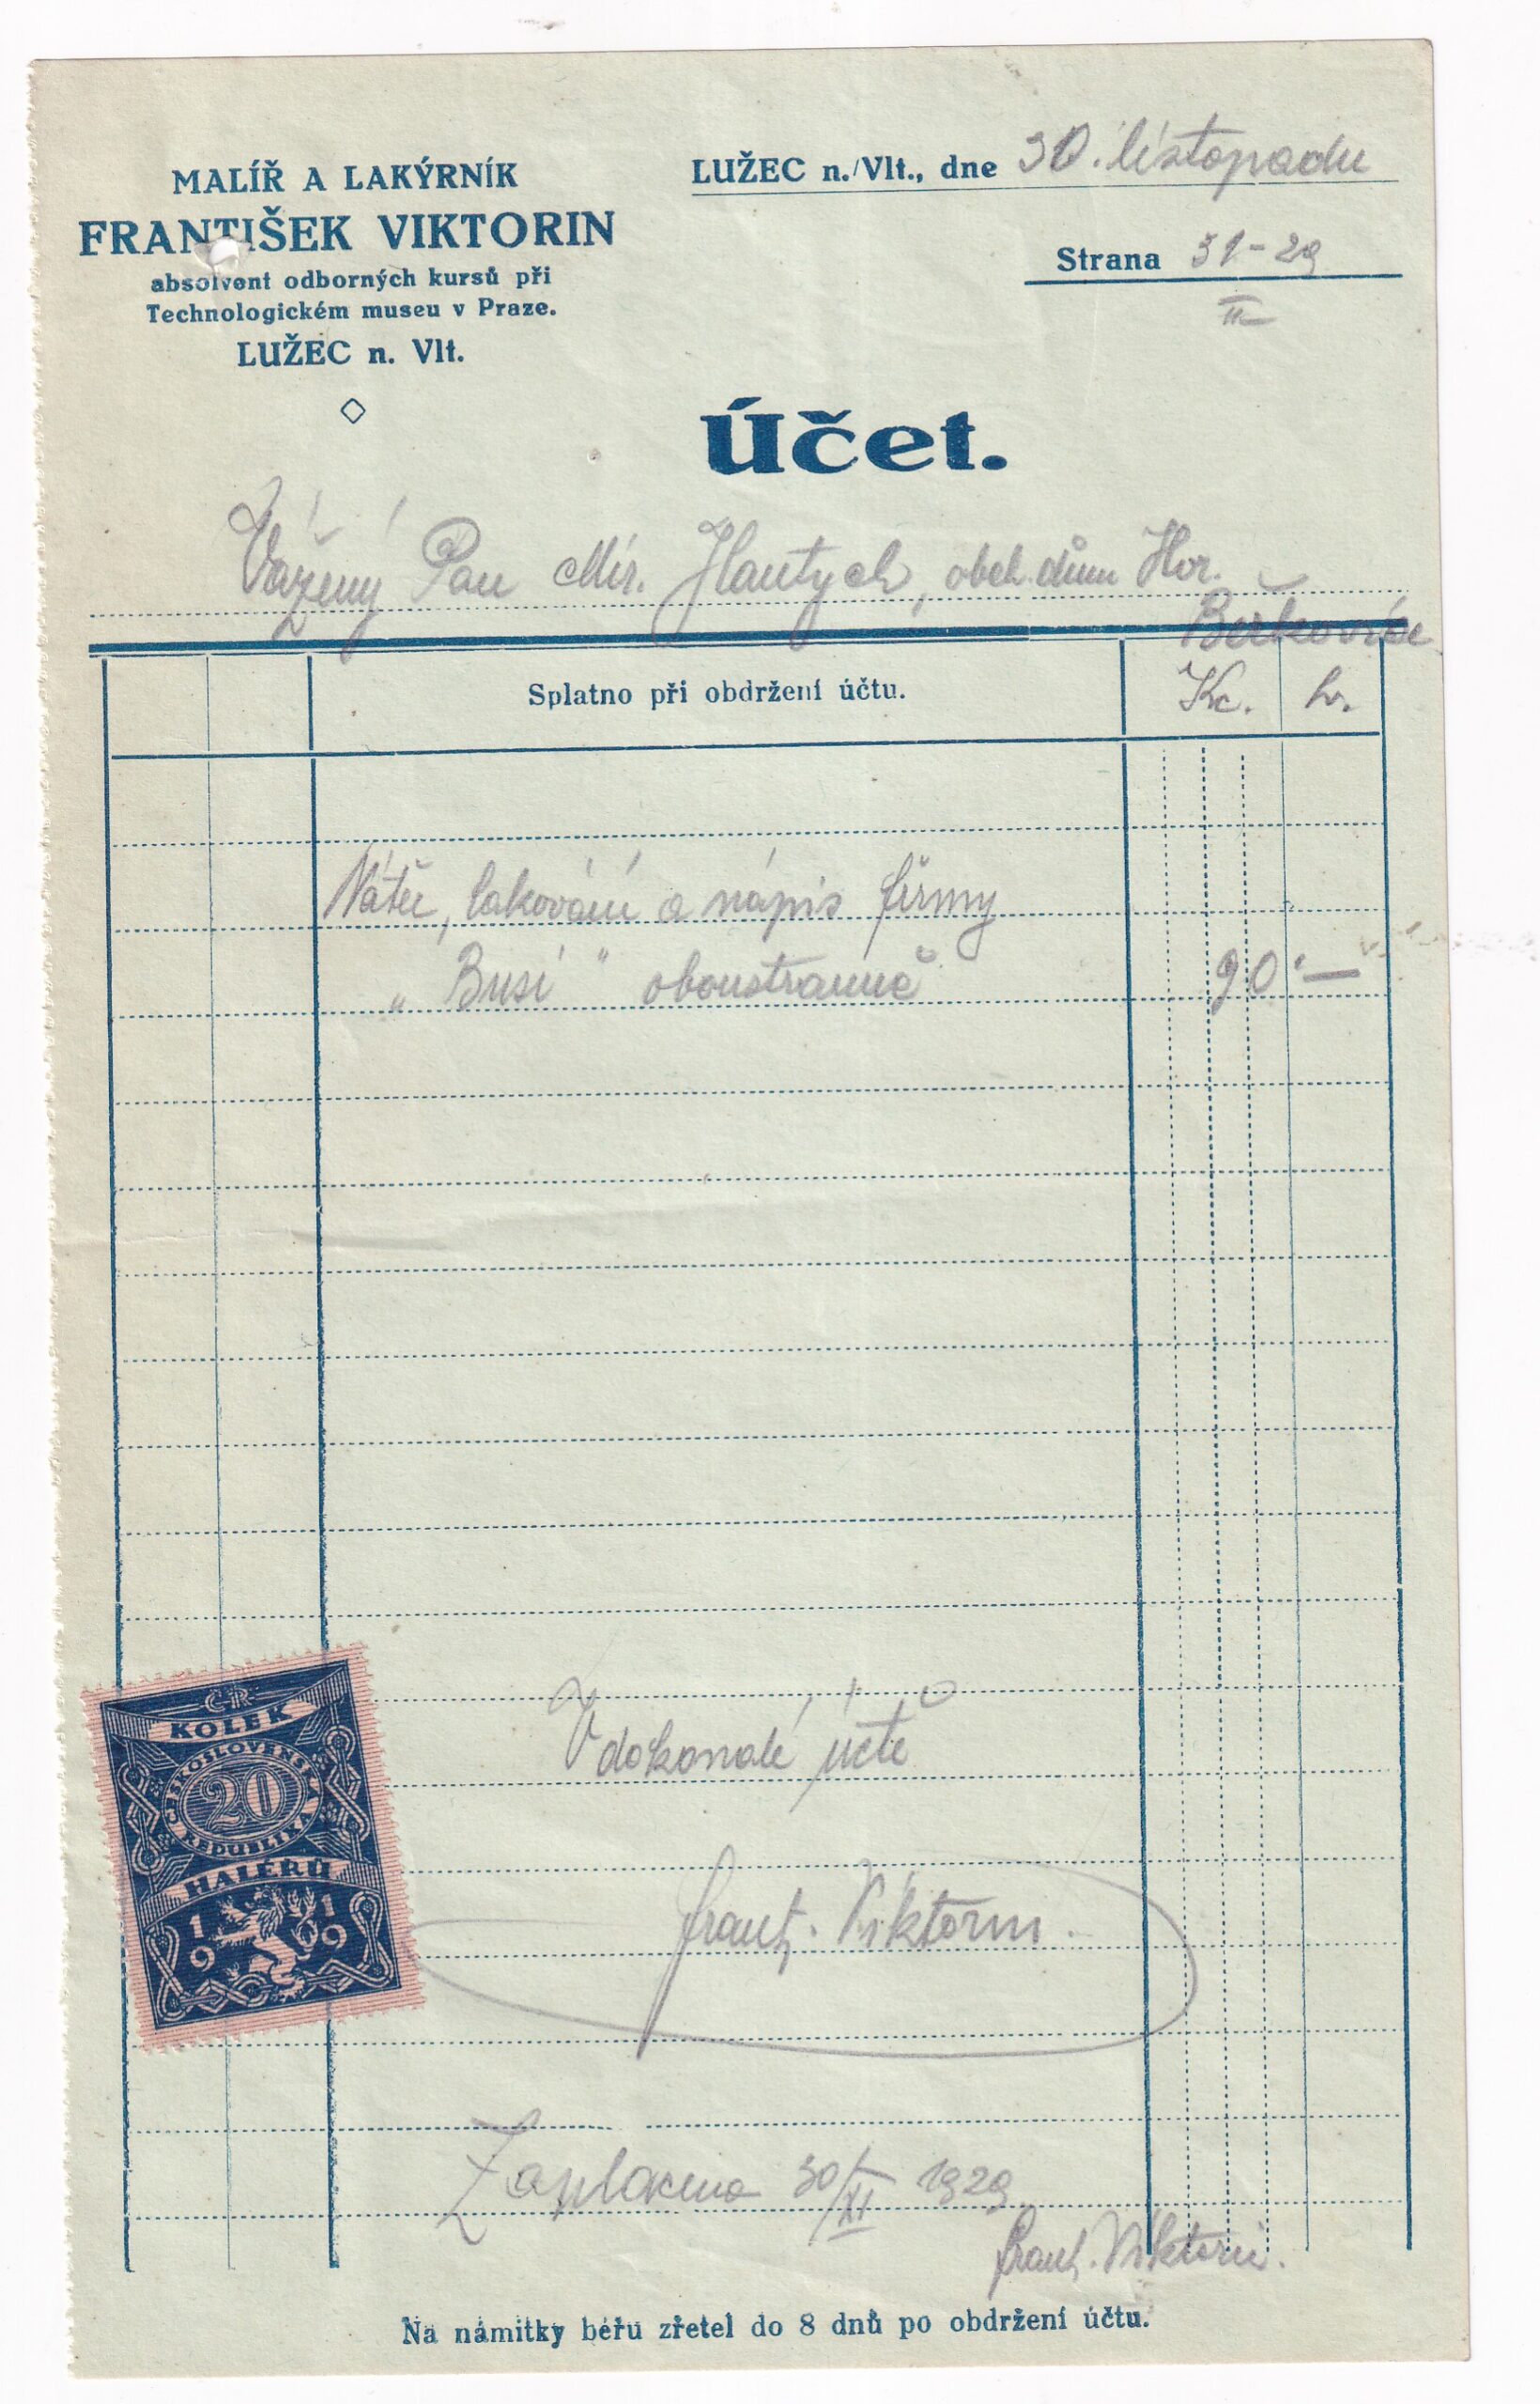 MALÍŘ A LAKÝRNÍK
FRANTIŠEK VIKTORIN
absolvent odborných kursů při
Technologickém museu v Praze.
LUŽEC n. Vlt.
LUŽEC n./Vlt., dne 30. listopadu
Strana 31-29
II
Účet.
Vážený Pan Mir. Hautych, obch. dům Hor.
Beřkovice
Splatno při obdržení účtu.
Kc. h.
Nátěr, lakování a nápis firmy
„Busi" oboustranně 90·—
ČR
KOLEK
ČESKOSLOVENSKÁ
20
REPUBLIKA
HALÉŘŮ
1919
V dokonalé úctě
Frant. Viktorin.
Zaplaceno 30/XI 1929
Frant. Viktorin.
Na námitky béřu zřetel do 8 dnů po obdržení účtu.